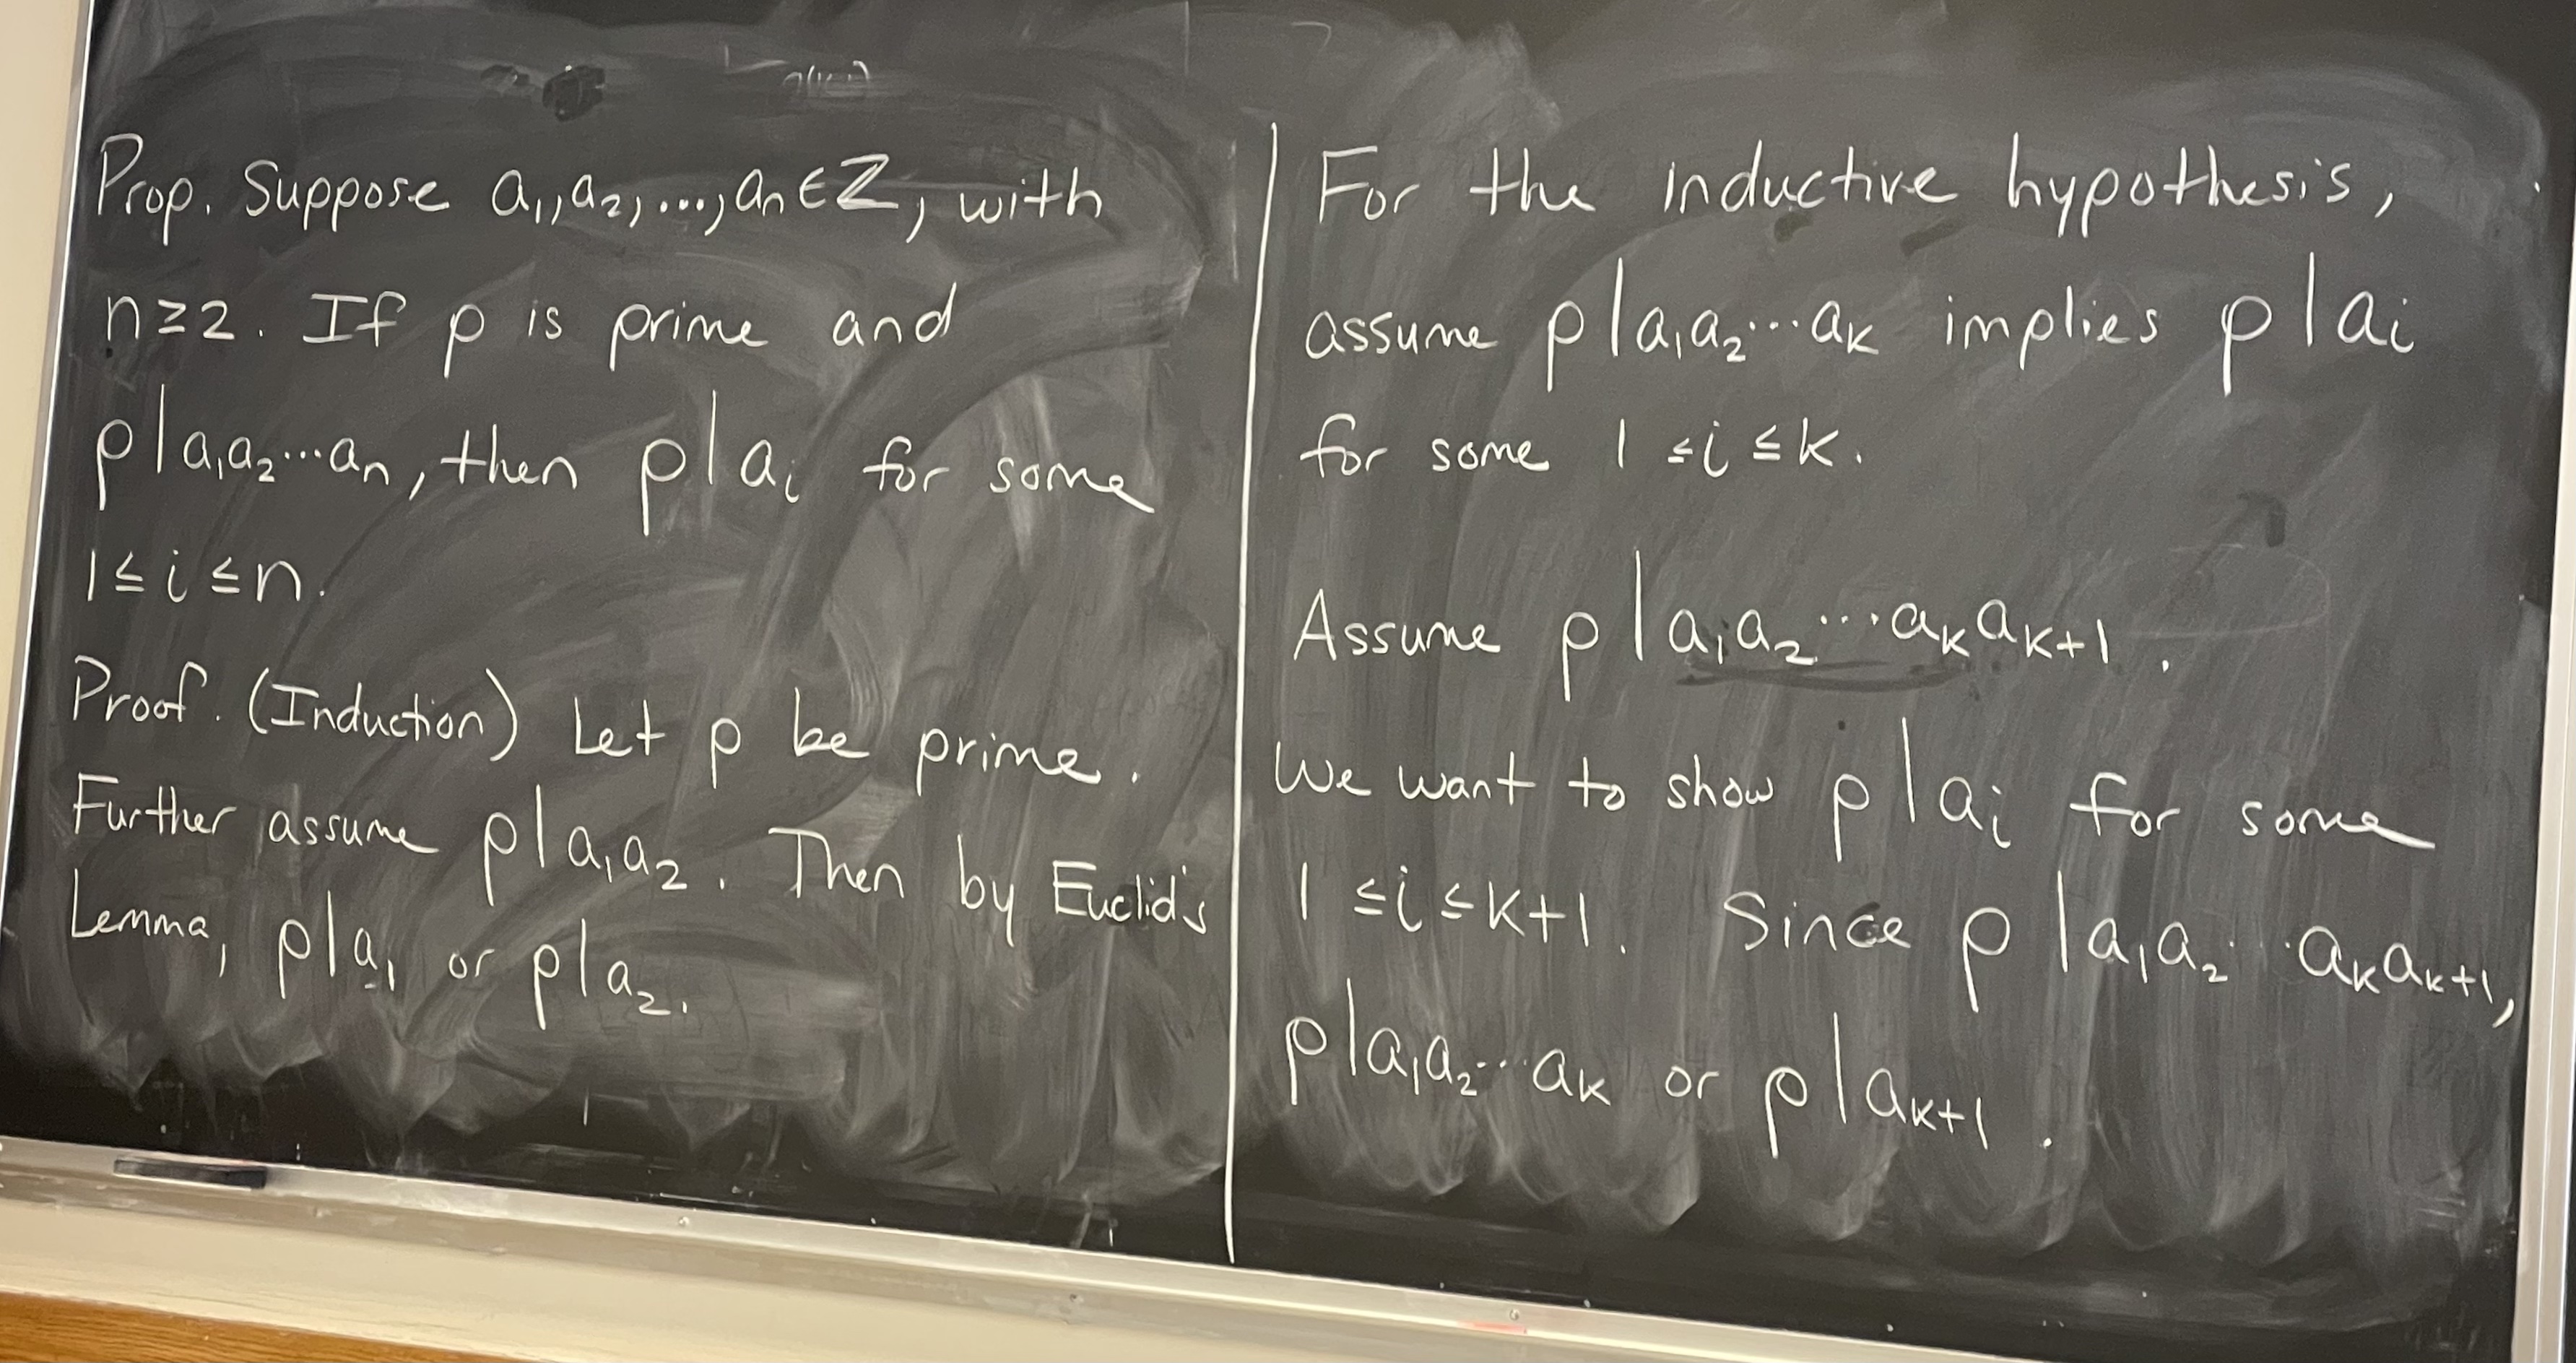 Prop. Suppose a₁, a₂, ..., aₙ ∈ ℤ, with
n ≥ 2. If p is prime and
p | a₁a₂⋯aₙ, then p | aᵢ for some
1 ≤ i ≤ n.
Proof. (Induction) Let p be prime.
Further assume p | a₁a₂. Then by Euclid's
Lemma, p | a₁ or p | a₂.
For the inductive hypothesis,
assume p | a₁a₂⋯aₖ implies p | aᵢ
for some 1 ≤ i ≤ k.
Assume p | a₁a₂⋯aₖaₖ₊₁.
We want to show p | aᵢ for some
1 ≤ i ≤ k+1. Since p | a₁a₂⋯aₖaₖ₊₁,
p | a₁a₂⋯aₖ or p | aₖ₊₁.